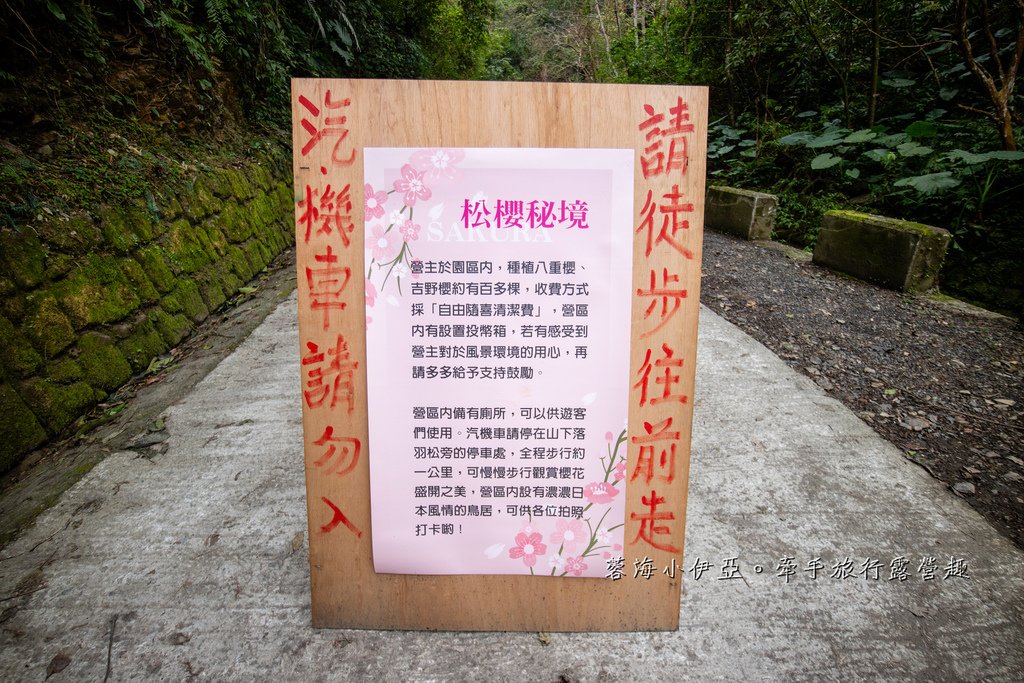 汽、機車請勿入
請徒步往前走
松櫻秘境
SAKURA
營主於園區內，種植八重櫻、
吉野櫻約有百多棵，收費方式
採「自由隨喜清潔費」，營區
內有設置投幣箱，若有感受到
營主對於風景環境的用心，再
請多多給予支持鼓勵。
營區內備有廁所，可以供遊客
們使用。汽機車請停在山下落
羽松旁的停車處，全程步行約
一公里，可慢慢步行觀賞櫻花
盛開之美，營區內設有濃濃日
本風情的鳥居，可供各位拍照
打卡喲！
蓉海小伊亞。牽手旅行露營趣